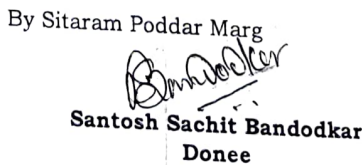 By Sitaram Poddar Marg
SBandodker
Santosh Sachit Bandodkar
Donee